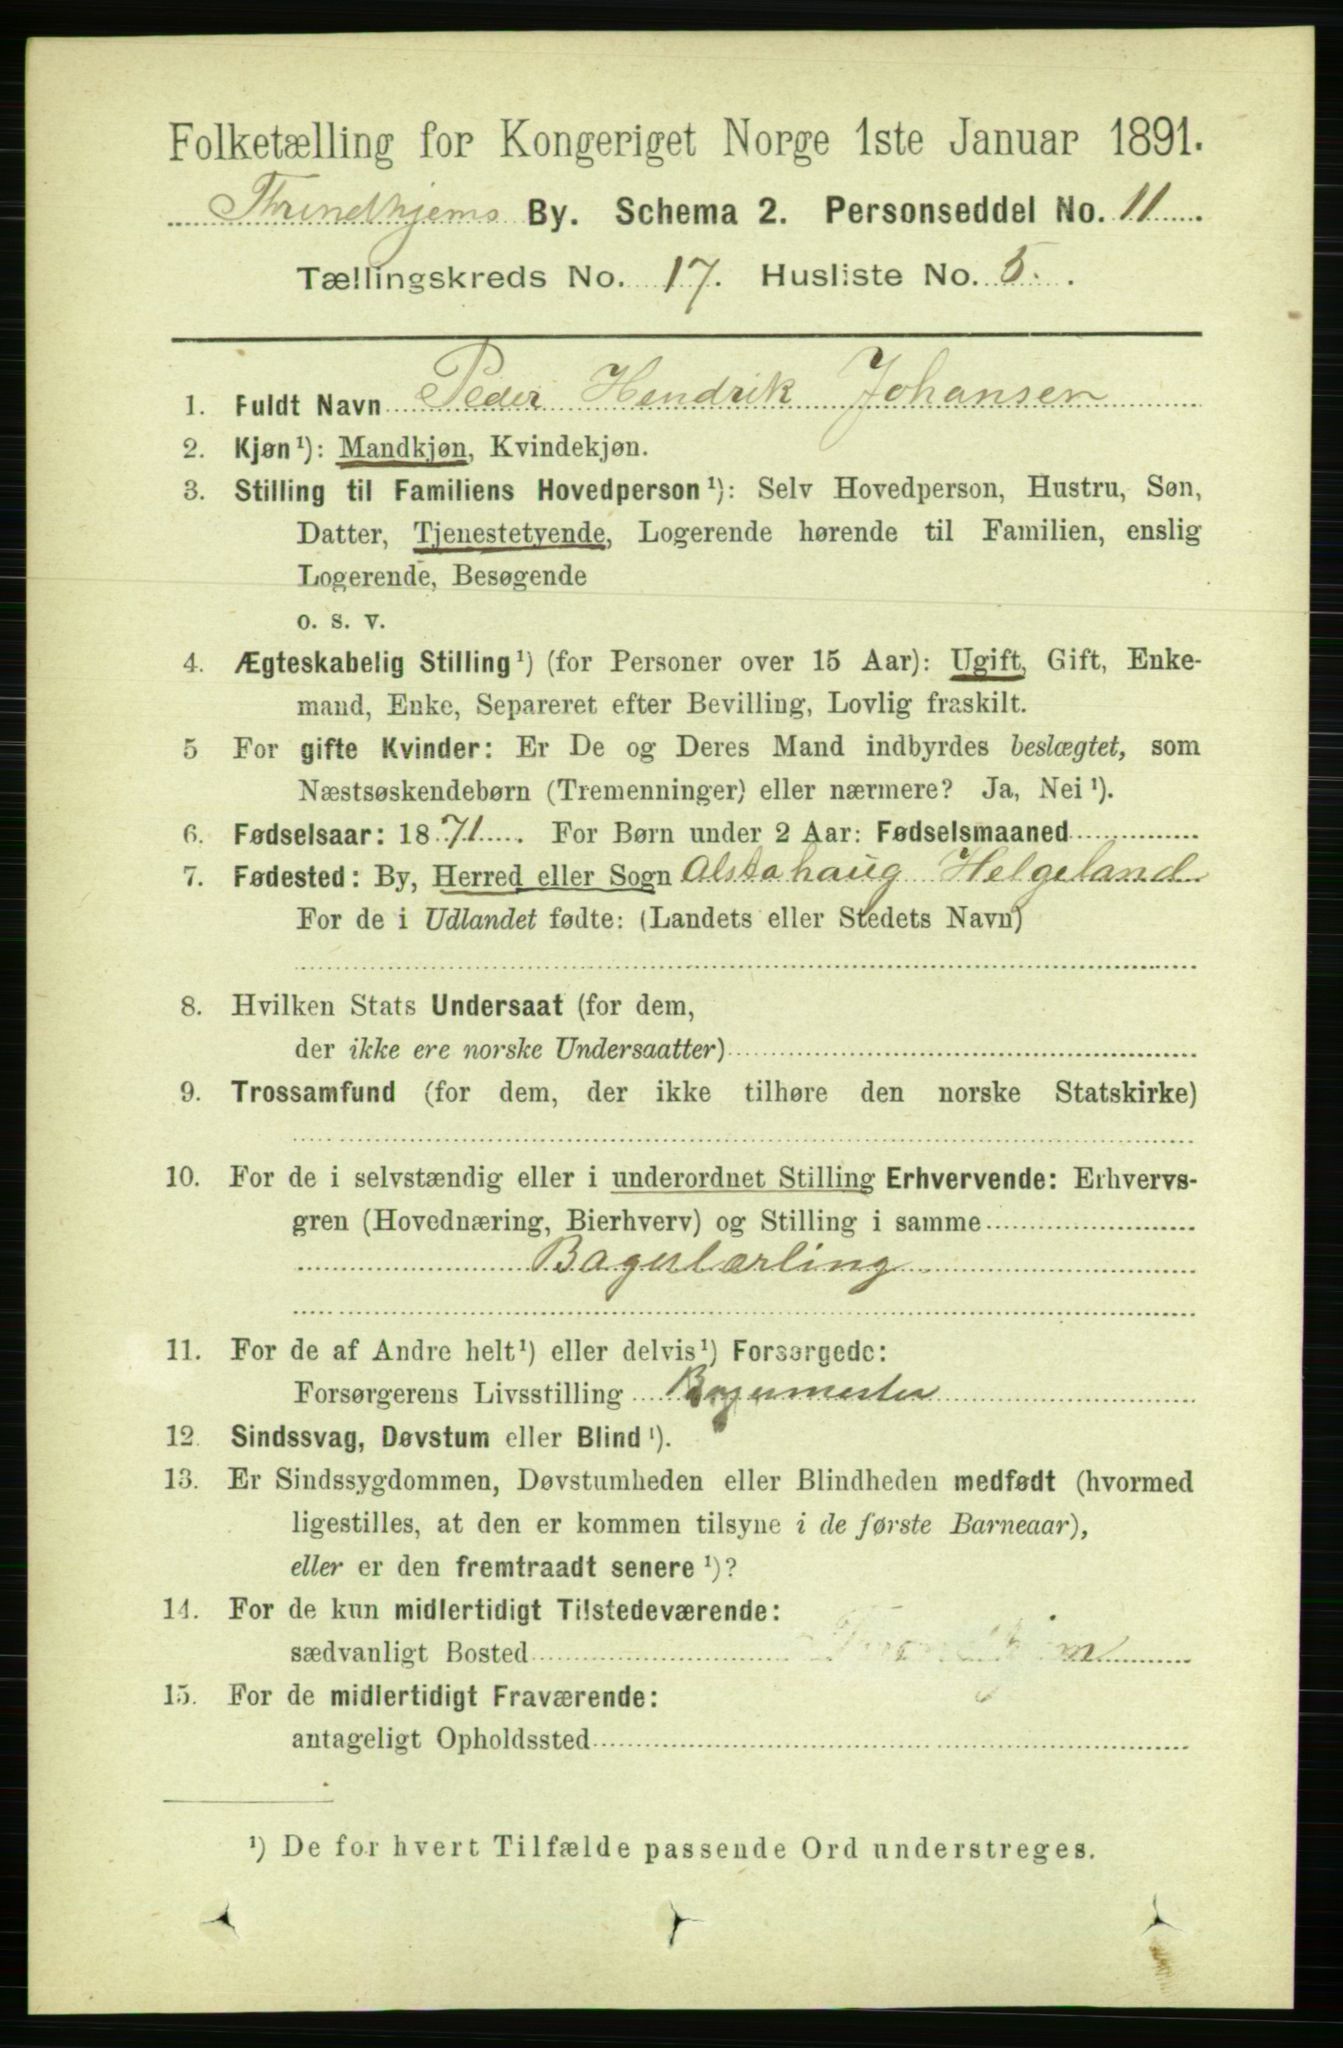 Folketælling for Kongeriget Norge 1ste Januar 1891.
Thrindhjems By. Schema 2. Personseddel No. 11
Tællingskreds No. 17. Husliste No. 5.
1. Fuldt Navn Peder Hendrik Johansen
2. Kjøn¹): Mandkjøn, Kvindekjøn.
3. Stilling til Familiens Hovedperson¹): Selv Hovedperson, Hustru, Søn,
Datter, Tjenestetyende, Logerende hørende til Familien, enslig
Logerende, Besøgende
o. s. v.
4. Ægteskabelig Stilling¹) (for Personer over 15 Aar): Ugift, Gift, Enke-
mand, Enke, Separeret efter Bevilling, Lovlig fraskilt.
5 For gifte Kvinder: Er De og Deres Mand indbyrdes beslægtet, som
Næstsøskendebørn (Tremenninger) eller nærmere? Ja, Nei¹).
6. Fødselsaar: 1871. For Børn under 2 Aar: Fødselsmaaned
7. Fødested: By, Herred eller Sogn Alstahaug Helgeland
For de i Udlandet fødte: (Landets eller Stedets Navn)
8. Hvilken Stats Undersaat (for dem,
der ikke ere norske Undersaatter)
9. Trossamfund (for dem, der ikke tilhøre den norske Statskirke)
10. For de i selvstændig eller i underordnet Stilling Erhvervende: Erhvervs-
gren (Hovednæring, Bierhverv) og Stilling i samme
Bagerlærling
11. For de af Andre helt¹) eller delvis¹) Forsørgede:
Forsørgerens Livsstilling Bagermester
12. Sindssvag, Døvstum eller Blind¹).
13. Er Sindssygdommen, Døvstumheden eller Blindheden medfødt (hvormed
ligestilles, at den er kommen tilsyne i de første Barneaar),
eller er den fremtraadt senere¹)?
14. For de kun midlertidigt Tilstedeværende:
sædvanligt Bosted Trondhjem
15. For de midlertidigt Fraværende:
antageligt Opholdssted
¹) De for hvert Tilfælde passende Ord understreges.